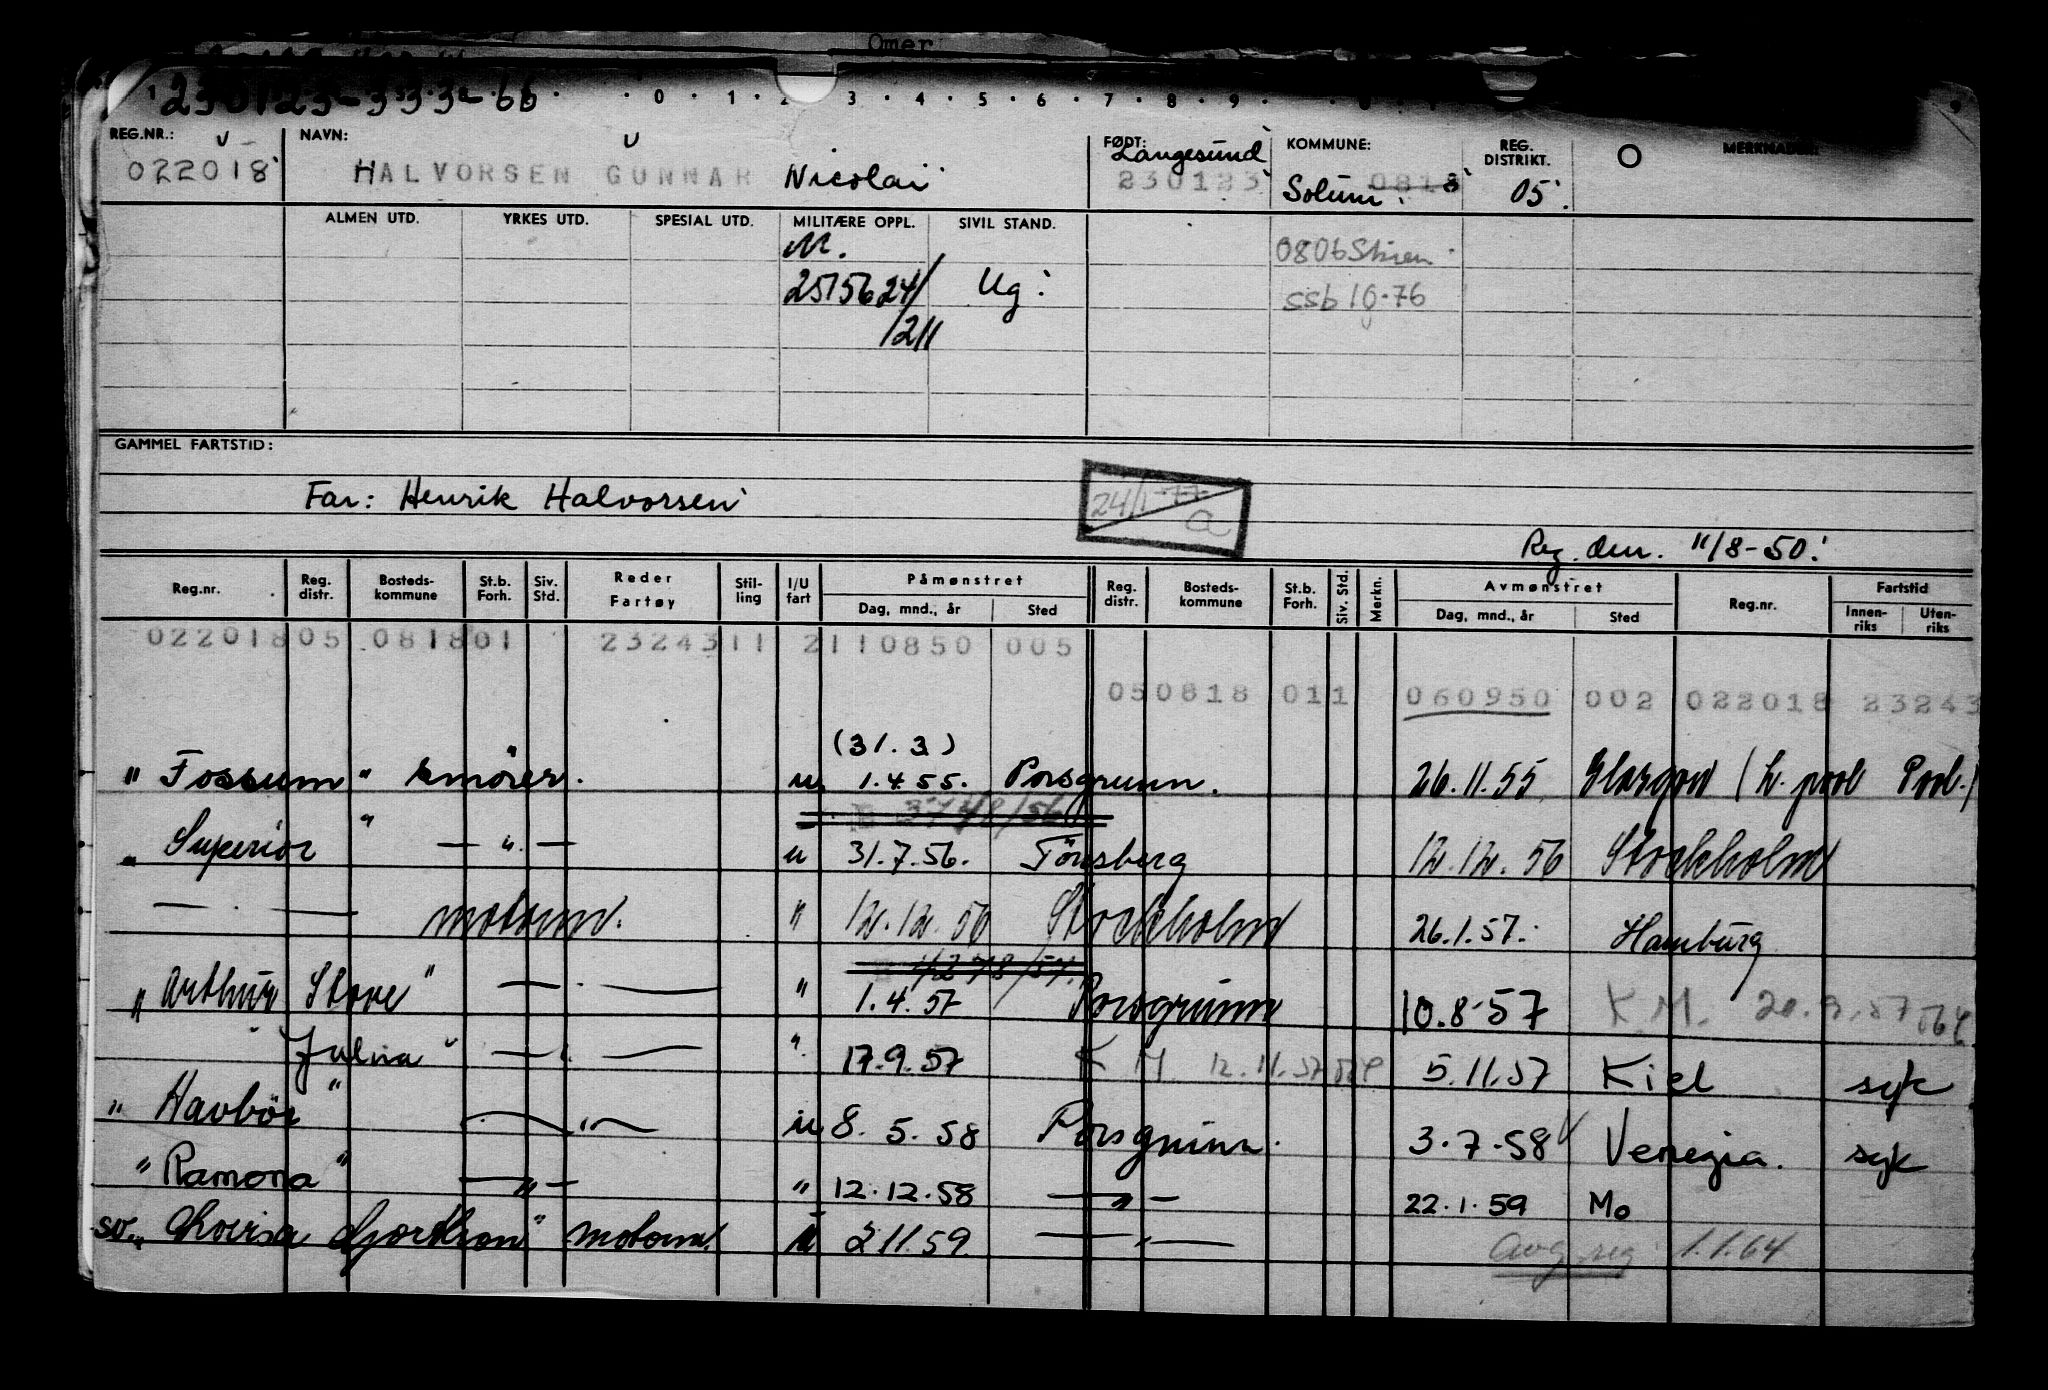 Omer
230123-333-66
0 . 1 . 2 . 3 . 4 . 5 . 6 . 7 . 8 . 9 .
REG.NR.: NAVN: FØDT: KOMMUNE: REG. DISTRIKT. MERKNADER:
022018 HALVORSEN GUNNAR Nicolai Langesund 230123 Solum 0818 05
ALMEN UTD. YRKES UTD. SPESIAL UTD. MILITÆRE OPPL. SIVIL STAND.
M. 0806 Skien
2515624/ Ug. ssb 10-76
/211
GAMMEL FARTSTID:
Far: Henrik Halvorsen 24/1-77 a
Reg. den. 11/8-50.
Reg.nr. Reg. distr. Bosteds-kommune St.b. Forh. Siv. Std. Reder Fartøy Stil-ling I/U fart Påmønstret Reg. distr. Bosteds-kommune St.b. Forh. Siv. Std. Merkn. Avmønstret Reg.nr. Fartstid
Dag, mnd., år Sted Dag, mnd., år Sted Innen-riks Uten-riks
022018 05 081801 2324311 2110850 005
050818 011 060950 002 022018 23243
(31.3)
"Fossum" smörer. u 1.4.55. Porsgrunn. 26.11.55 Glasgow
"Superior" — " — u 31.7.56. Tönsberg 12.12.56 Stockholm
— . — motorm. " 12.12.56 Stockholm 26.1.57. Hamburg
"Arthur Stove" — . — " 1.4.57 Porsgrunn 10.8.57 K.M. 20.9.57
— " — " 17.9.57 K M 12.11.57 5.11.57 Kiel syk
"Havbör" — " — u 8.5.58 Porsgrunn. 3.7.58 Venezia. syk
"Ramona" — " — " 12.12.58 — " — 22.1.59 Mo
motorm. 2.11.59 — " — Avg. reg. 1.1.64